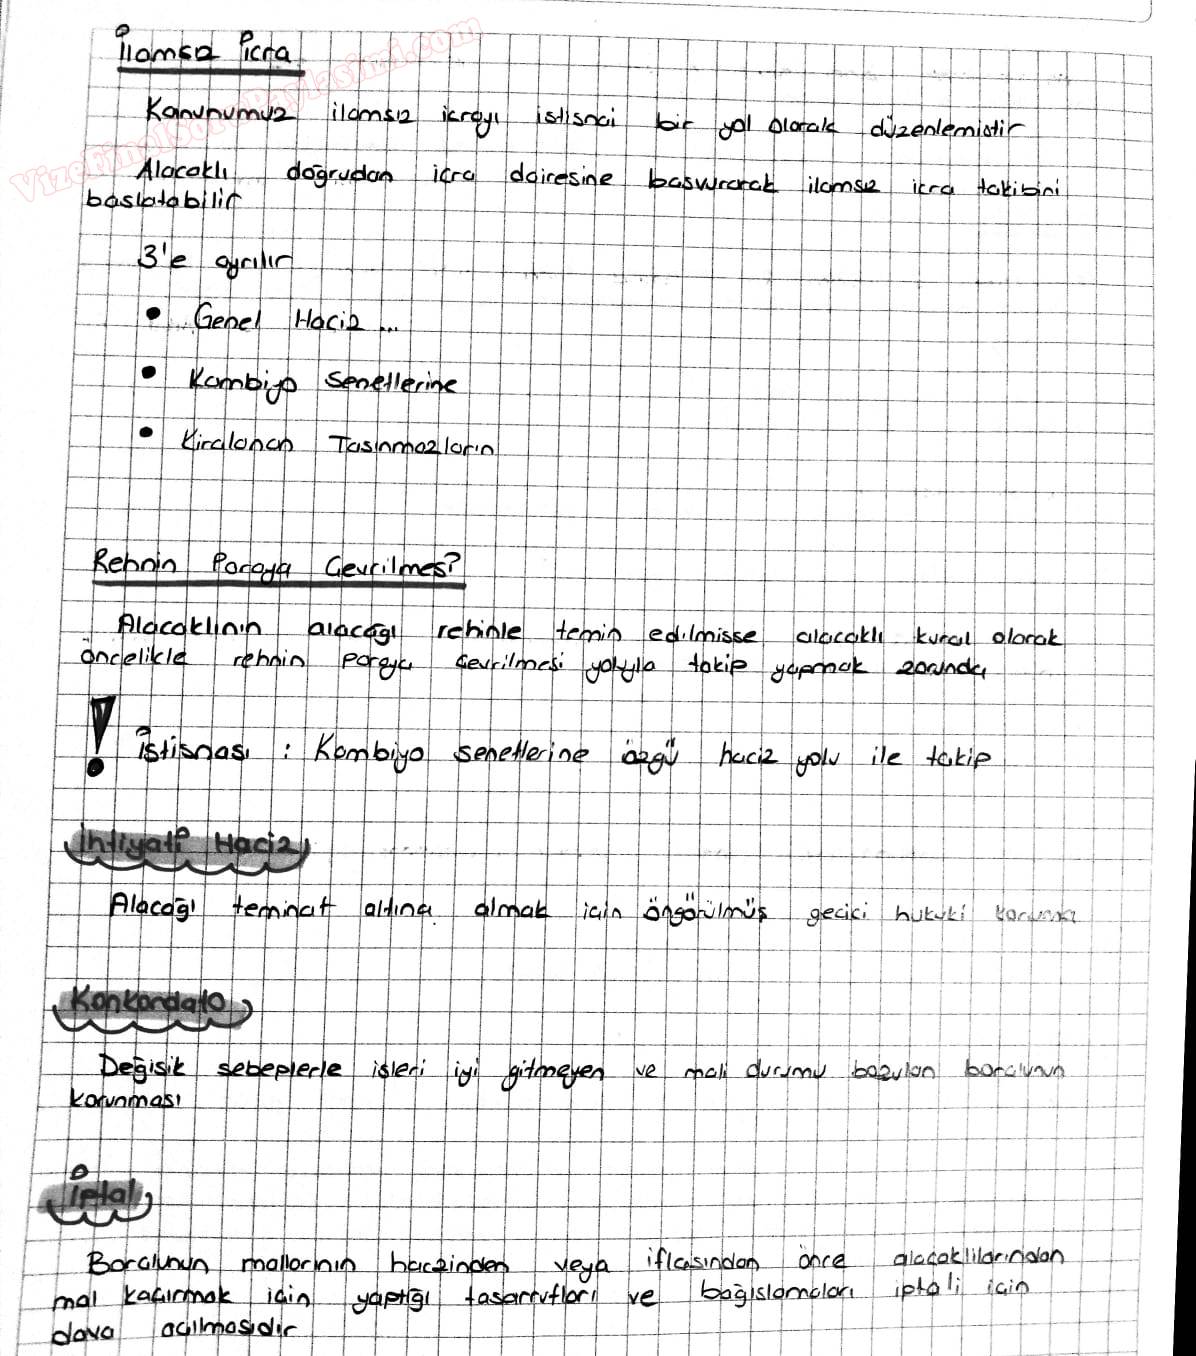 İlamsız İcra
VizeFinalSoruPaylasimi.com
Kanunumuz ilamsız icrayı istisnai bir yol olarak düzenlemistir
Alacaklı doğrudan icra dairesine basvurarak ilamsız icra takibini
baslatabilir
3'e ayrılır
• Genel Haciz ...
• Kambiyo Senetlerine
• Kiralanan Tasınmazların
Rehnin Paraya Cevrilmes?
Alacaklının alacağı rehinle temin edilmisse alacaklı kural olarak
öncelikle rehnin paraya cevrilmesi yoluyla takip yapmak zorunda
! İstisnası : Kambiyo senetlerine özgü haciz yolu ile takip
İhtiyati Haciz
Alacağı teminat altına almak icin öngörülmüş gecici hukuki koruma
Konkordato
Değisik sebeplerle isleri iyi gitmeyen ve mali durumu bozulan borclunun
korunması
İptal
Borclunun mallarının haczinden veya iflasından önce alacaklılarından
mal kacırmak icin yaptığı tasarrufları ve bağıslamaları iptali icin
dava acılmasıdır